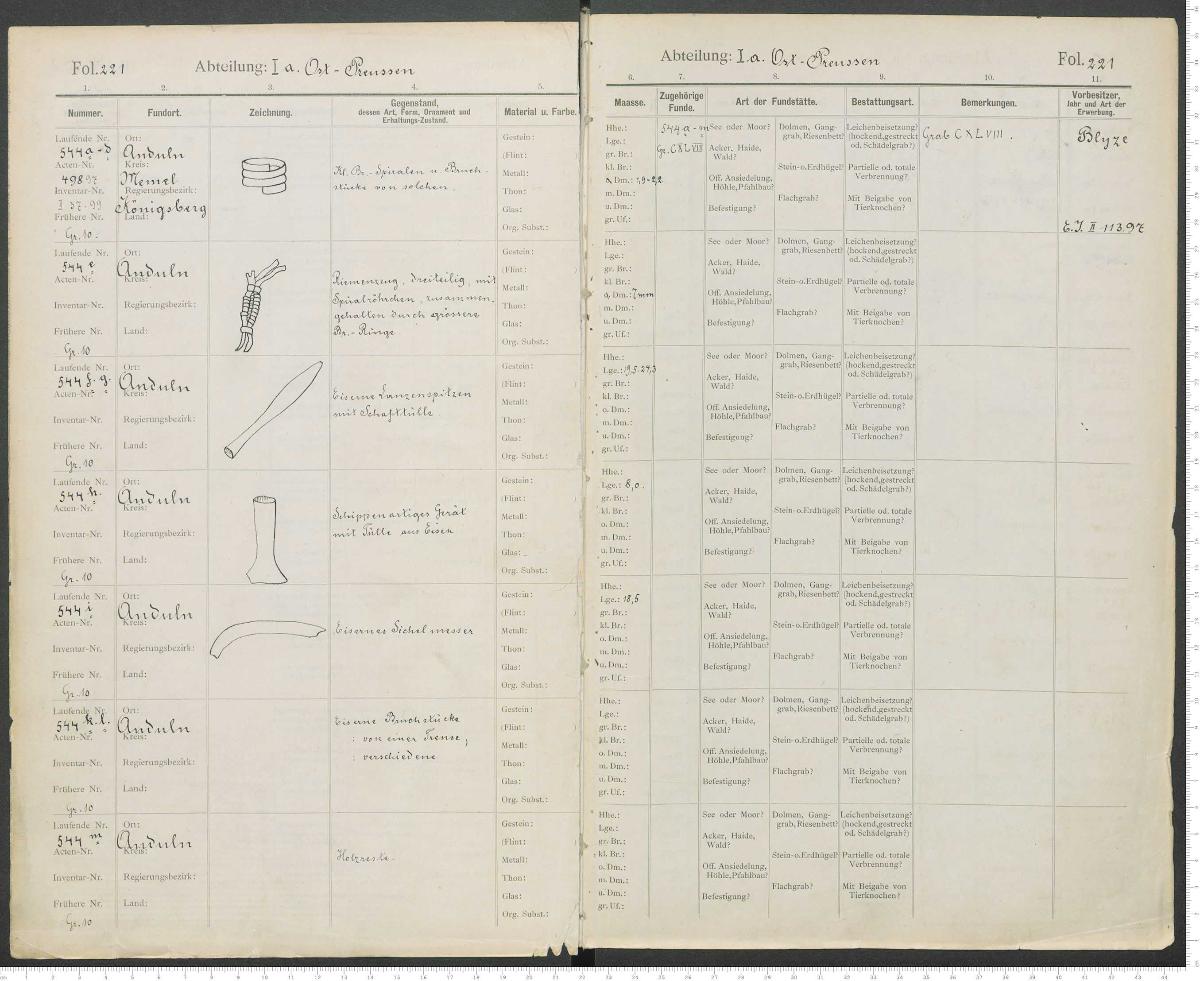 Fol. 221 Abteilung: I a. Ost-Preussen
1. 2. 3. 4. 5.
Nummer. Fundort. Zeichnung. Gegenstand, dessen Art, Form, Ornament und Erhaltungs-Zustand. Material u. Farbe.
Laufende Nr. Ort: Gestein:
544 a-d Anduln
Acten-Nr. Kreis: (Flint:
498 97 Memel Kl. Br.-Spiralen u. Bruch- Metall:
Inventar-Nr. Regierungsbezirk: stücke von solchen. Thon:
I 57.99 Königsberg
Frühere Nr. Land: Glas:
Gr. 10. Org. Subst.:
Laufende Nr. Ort: Gestein:
544 e Anduln
Acten-Nr. Kreis: (Flint:
Riemenzeug, dreiteilig, mit Metall:
Inventar-Nr. Regierungsbezirk: Spiralröhrchen, zusammen- Thon:
gehalten durch grössere Glas:
Frühere Nr. Land: Br.-Ringe.
Gr. 10 Org. Subst.:
Laufende Nr. Ort: Gestein:
544 f. g. Anduln
Acten-Nr. Kreis: (Flint:
Eiserne Lanzenspitzen Metall:
Inventar-Nr. Regierungsbezirk: mit Schafttülle. Thon:
Frühere Nr. Land: Glas:
Gr. 10 Org. Subst.:
Laufende Nr. Ort: Gestein:
544 h. Anduln
Acten-Nr. Kreis: (Flint:
Schüppenartiges Gerät Metall:
Inventar-Nr. Regierungsbezirk: mit Tülle aus Eisen Thon:
Frühere Nr. Land: Glas:
Gr. 10 Org. Subst.:
Laufende Nr. Ort: Gestein:
544 i Anduln
Acten-Nr. Kreis: (Flint:
Eisernes Sichelmesser Metall:
Inventar-Nr. Regierungsbezirk: Thon:
Frühere Nr. Land: Glas:
Gr. 10 Org. Subst.:
Laufende Nr. Ort: Gestein:
544 k. l. Anduln Eiserne Bruchstücke
Acten-Nr. Kreis: : von einer Trense, (Flint:
: verschiedene Metall:
Inventar-Nr. Regierungsbezirk: Thon:
Frühere Nr. Land: Glas:
Gr. 10 Org. Subst.:
Laufende Nr. Ort: Gestein:
544 m Anduln
Acten-Nr. Kreis: (Flint:
Holzreste. Metall:
Inventar-Nr. Regierungsbezirk: Thon:
Frühere Nr. Land: Glas:
Gr. 10 Org. Subst.:
Abteilung: I.a. Ost-Preussen Fol. 221
6. 7. 8. 9. 10. 11.
Maasse. Zugehörige Funde. Art der Fundstätte. Bestattungsart. Bemerkungen. Vorbesitzer, Jahr und Art der Erwerbung.
Hhe.: 544 a-m See oder Moor? Dolmen, Gang- Leichenbeisetzung? Grab CXLVIII. Blyze
Lge.: grab, Riesenbett? (hockend, gestreckt
gr. Br.: Gr. CXLVIII Acker, Haide, od. Schädelgrab?)
kl. Br.: Wald? Stein-o. Erdhügel? Partielle od. totale
o. Dm.: 1,9-2,2 Off. Ansiedelung, Verbrennung?
m. Dm.: Höhle, Pfahlbau? Flachgrab? Mit Beigabe von
u. Dm.: Befestigung? Tierknochen?
gr. Uf.: E.J. II 113.97
Hhe.: See oder Moor? Dolmen, Gang- Leichenbeisetzung?
Lge.: grab, Riesenbett? (hockend, gestreckt
gr. Br.: Acker, Haide, od. Schädelgrab?)
kl. Br.: Wald? Stein-o. Erdhügel? Partielle od. totale
o. Dm.: 7 mm Off. Ansiedelung, Verbrennung?
m. Dm.: Höhle, Pfahlbau? Flachgrab? Mit Beigabe von
u. Dm.: Befestigung? Tierknochen?
gr. Uf.:
Hhe.: See oder Moor? Dolmen, Gang- Leichenbeisetzung?
Lge.: 19,5-27,3 grab, Riesenbett? (hockend, gestreckt
gr. Br.: Acker, Haide, od. Schädelgrab?)
kl. Br.: Wald? Stein-o. Erdhügel? Partielle od. totale
o. Dm.: Off. Ansiedelung, Verbrennung?
m. Dm.: Höhle, Pfahlbau? Flachgrab? Mit Beigabe von
u. Dm.: Befestigung? Tierknochen?
gr. Uf.:
Hhe.: See oder Moor? Dolmen, Gang- Leichenbeisetzung?
Lge.: 8,0. grab, Riesenbett? (hockend, gestreckt
gr. Br.: Acker, Haide, od. Schädelgrab?)
kl. Br.: Wald? Stein-o. Erdhügel? Partielle od. totale
o. Dm.: Off. Ansiedelung, Verbrennung?
m. Dm.: Höhle, Pfahlbau? Flachgrab? Mit Beigabe von
u. Dm.: Befestigung? Tierknochen?
gr. Uf.:
Hhe.: See oder Moor? Dolmen, Gang- Leichenbeisetzung?
Lge.: 18,5 grab, Riesenbett? (hockend, gestreckt
gr. Br.: Acker, Haide, od. Schädelgrab?)
kl. Br.: Wald? Stein-o. Erdhügel? Partielle od. totale
o. Dm.: Off. Ansiedelung, Verbrennung?
m. Dm.: Höhle, Pfahlbau? Flachgrab? Mit Beigabe von
u. Dm.: Befestigung? Tierknochen?
gr. Uf.:
Hhe.: See oder Moor? Dolmen, Gang- Leichenbeisetzung?
Lge.: grab, Riesenbett? (hockend, gestreckt
gr. Br.: Acker, Haide, od. Schädelgrab?)
kl. Br.: Wald? Stein-o. Erdhügel? Partielle od. totale
o. Dm.: Off. Ansiedelung, Verbrennung?
m. Dm.: Höhle, Pfahlbau? Flachgrab? Mit Beigabe von
u. Dm.: Befestigung? Tierknochen?
gr. Uf.:
Hhe.: See oder Moor? Dolmen, Gang- Leichenbeisetzung?
Lge.: grab, Riesenbett? (hockend, gestreckt
gr. Br.: Acker, Haide, od. Schädelgrab?)
kl. Br.: Wald? Stein-o. Erdhügel? Partielle od. totale
o. Dm.: Off. Ansiedelung, Verbrennung?
m. Dm.: Höhle, Pfahlbau? Flachgrab? Mit Beigabe von
u. Dm.: Befestigung? Tierknochen?
gr. Uf.: